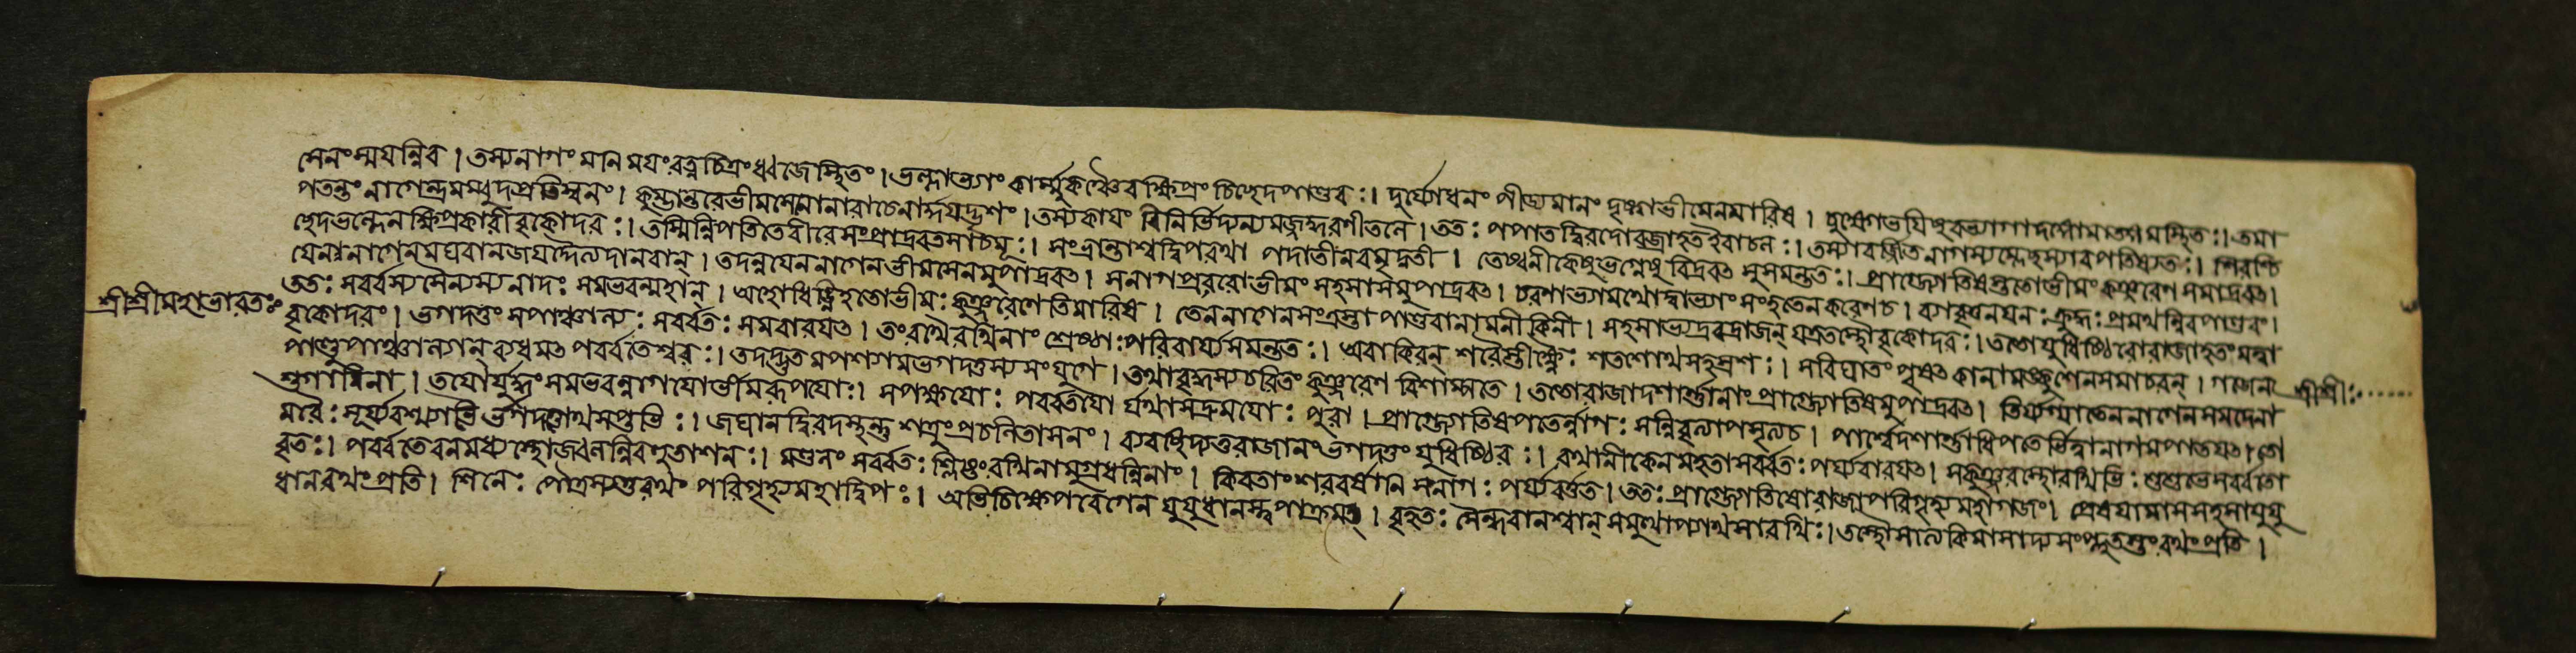 সেনং স্ময়ন্নিব । তস্য নাগং মনিময়ং রত্নচিত্রং ধ্বজে স্থিতং । ভল্লাভ্যাং কার্ম্মুকঞ্চৈব ক্ষিপ্রং চিচ্ছেদ পাণ্ডবঃ । দুর্য্যোধনং পীড্যমানং দৃষ্ট্বা ভীমেন মারিষ । চুক্ষোভয়িষুরভ্যাগাদঙ্গো মাতঙ্গমাস্থিতঃ । তমা
পতন্তং নাগেন্দ্রমম্বুদপ্রতিমস্বনং । কুম্ভান্তরে ভীমসেনো নারাচেনার্দ্দয়দ্ভৃশং । তস্য কায়ং বিনির্ভিদ্য ন্যমজ্জদ্ধরণীতলে । ততঃ পপাত দ্বিরদো বজ্রাহত ইবাচলঃ । তস্যাবর্জ্জিতনাগস্য ম্লেচ্ছস্যাবপতিষ্যতঃ । শিরশ্চি
চ্ছেদ ভল্লেন ক্ষিপ্রকারী বৃকোদরঃ । তস্মিন্নিপতিতে বীরে সংপ্রাদ্রবত সা চমূঃ । সংভ্রান্তাশ্বদ্বিপরথা পদাতীনবমৃদ্নতী । তেষ্বনীকেষু ভগ্নেষু বিদ্রবৎসু সমন্ততঃ । প্রাগ্জ্যোতিষস্ততো ভীমং কুঞ্জরেণ সমাদ্রবৎ ।
যেন নাগেন মঘবানজয়দ্দৈত্যদানবান্ । তদন্বয়েন নাগেন ভীমসেনমুপাদ্রবৎ । স নাগপ্রবরো ভীমং সহসা সমুপাদ্রবৎ । চরণাভ্যামথো দ্বাভ্যাং সংহতেন করেণ চ । ব্যাবৃত্তনয়নঃ ক্রুদ্ধঃ প্রমথন্নিব পাণ্ডবং ।
ততঃ সর্ব্বস্য সৈন্যস্য নাদঃ সমভবন্মহান্ । অহো ধিঙ্নিহতো ভীমঃ কুঞ্জরেণেতি মারিষ । তেন নাগেন সংত্রস্তা পাণ্ডবানামনীকিনী । সহসাভ্যদ্রবদ্রাজন্ যত্র তস্থৌ বৃকোদরঃ । ততো যুধিষ্ঠিরো রাজা হতং মত্বা
শ্রীশ্রীমহাভারতঃ
বৃকোদরং । ভগদত্তং সপাঞ্চাল্যঃ সর্ব্বতঃ সমবারয়ৎ । তং রথৈ রথিনাং শ্রেষ্ঠাঃ পরিবার্য্য সমন্ততঃ । অবাকিরন্ শরৈস্তীক্ষ্ণৈঃ শতশোথ সহস্রশঃ । স বিঘাতং পৃষৎকানামঙ্কুশেন সমাচরন্ । গজেন
শ্রীশ্রীঃ
পাণ্ডুপাঞ্চালান্ ব্যধমৎ পর্ব্বতেশ্বরঃ । তদদ্ভুতমপশ্যাম ভগদত্তস্য সংযুগে । তথা বৃদ্ধস্য চরিতং কুঞ্জরেণ বিশাম্পতে । ততো রাজা দশার্ণানাং প্রাগ্জ্যোতিষমুপাদ্রবৎ । তির্য্যগ্যাতেন নাগেন সমদেনা
শুগামিনা । তয়োর্যুদ্ধং সমভবন্নাগয়োর্ভীমরূপয়োঃ । সপক্ষয়োঃ পর্ব্বতয়োর্যথা সদ্রুময়োঃ পুরা । প্রাগ্জ্যোতিষপতের্ন্নাগঃ সন্নিবৃত্যাপসৃত্য চ । পার্শ্বে দশার্ণাধিপতের্ভিত্ত্বা নাগমপাতয়ৎ । তো
মরৈঃ সূর্য্যরশ্ম্যাভৈর্ভগদত্তোথ সপ্তভিঃ । জঘান দ্বিরদস্থন্তু শত্রুং প্রচলিতাসনং । ব্যবচ্ছিদ্য তু রাজানং ভগদত্তং যুধিষ্ঠিরঃ । রথানীকেন মহতা সর্ব্বতঃ পর্য্যবারয়ৎ । স কুঞ্জরস্থো রথিভিঃ শুশুভে সর্ব্বতো
বৃতঃ । পর্ব্বতে বনমধ্যস্থো জ্বলন্নিব হুতাশনঃ । মণ্ডলং সর্ব্বতঃ শ্লিষ্টং রথিনামুগ্রধন্বিনাং । কিরতাং শরবর্ষাণি স নাগঃ পর্য্যবর্ত্তত । ততঃ প্রাগ্জ্যোতিষো রাজা পরিগৃহ্য মহাগজং । প্রেষয়ামাস সহসা যুযু
ধানরথং প্রতি । শিনেঃ পৌত্রস্য তু রথং পরিগৃহ্য মহাদ্বিপঃ । অভিচিক্ষেপ বেগেন যুযুধানস্ত্বপাক্রমৎ । বৃহতঃ সৈন্ধবানশ্বান্ সমুত্থাপ্যাথ সারথিঃ । তস্থৌ সাত্যকিমাসাদ্য সংপ্লুতস্তং রথং প্রতি ।